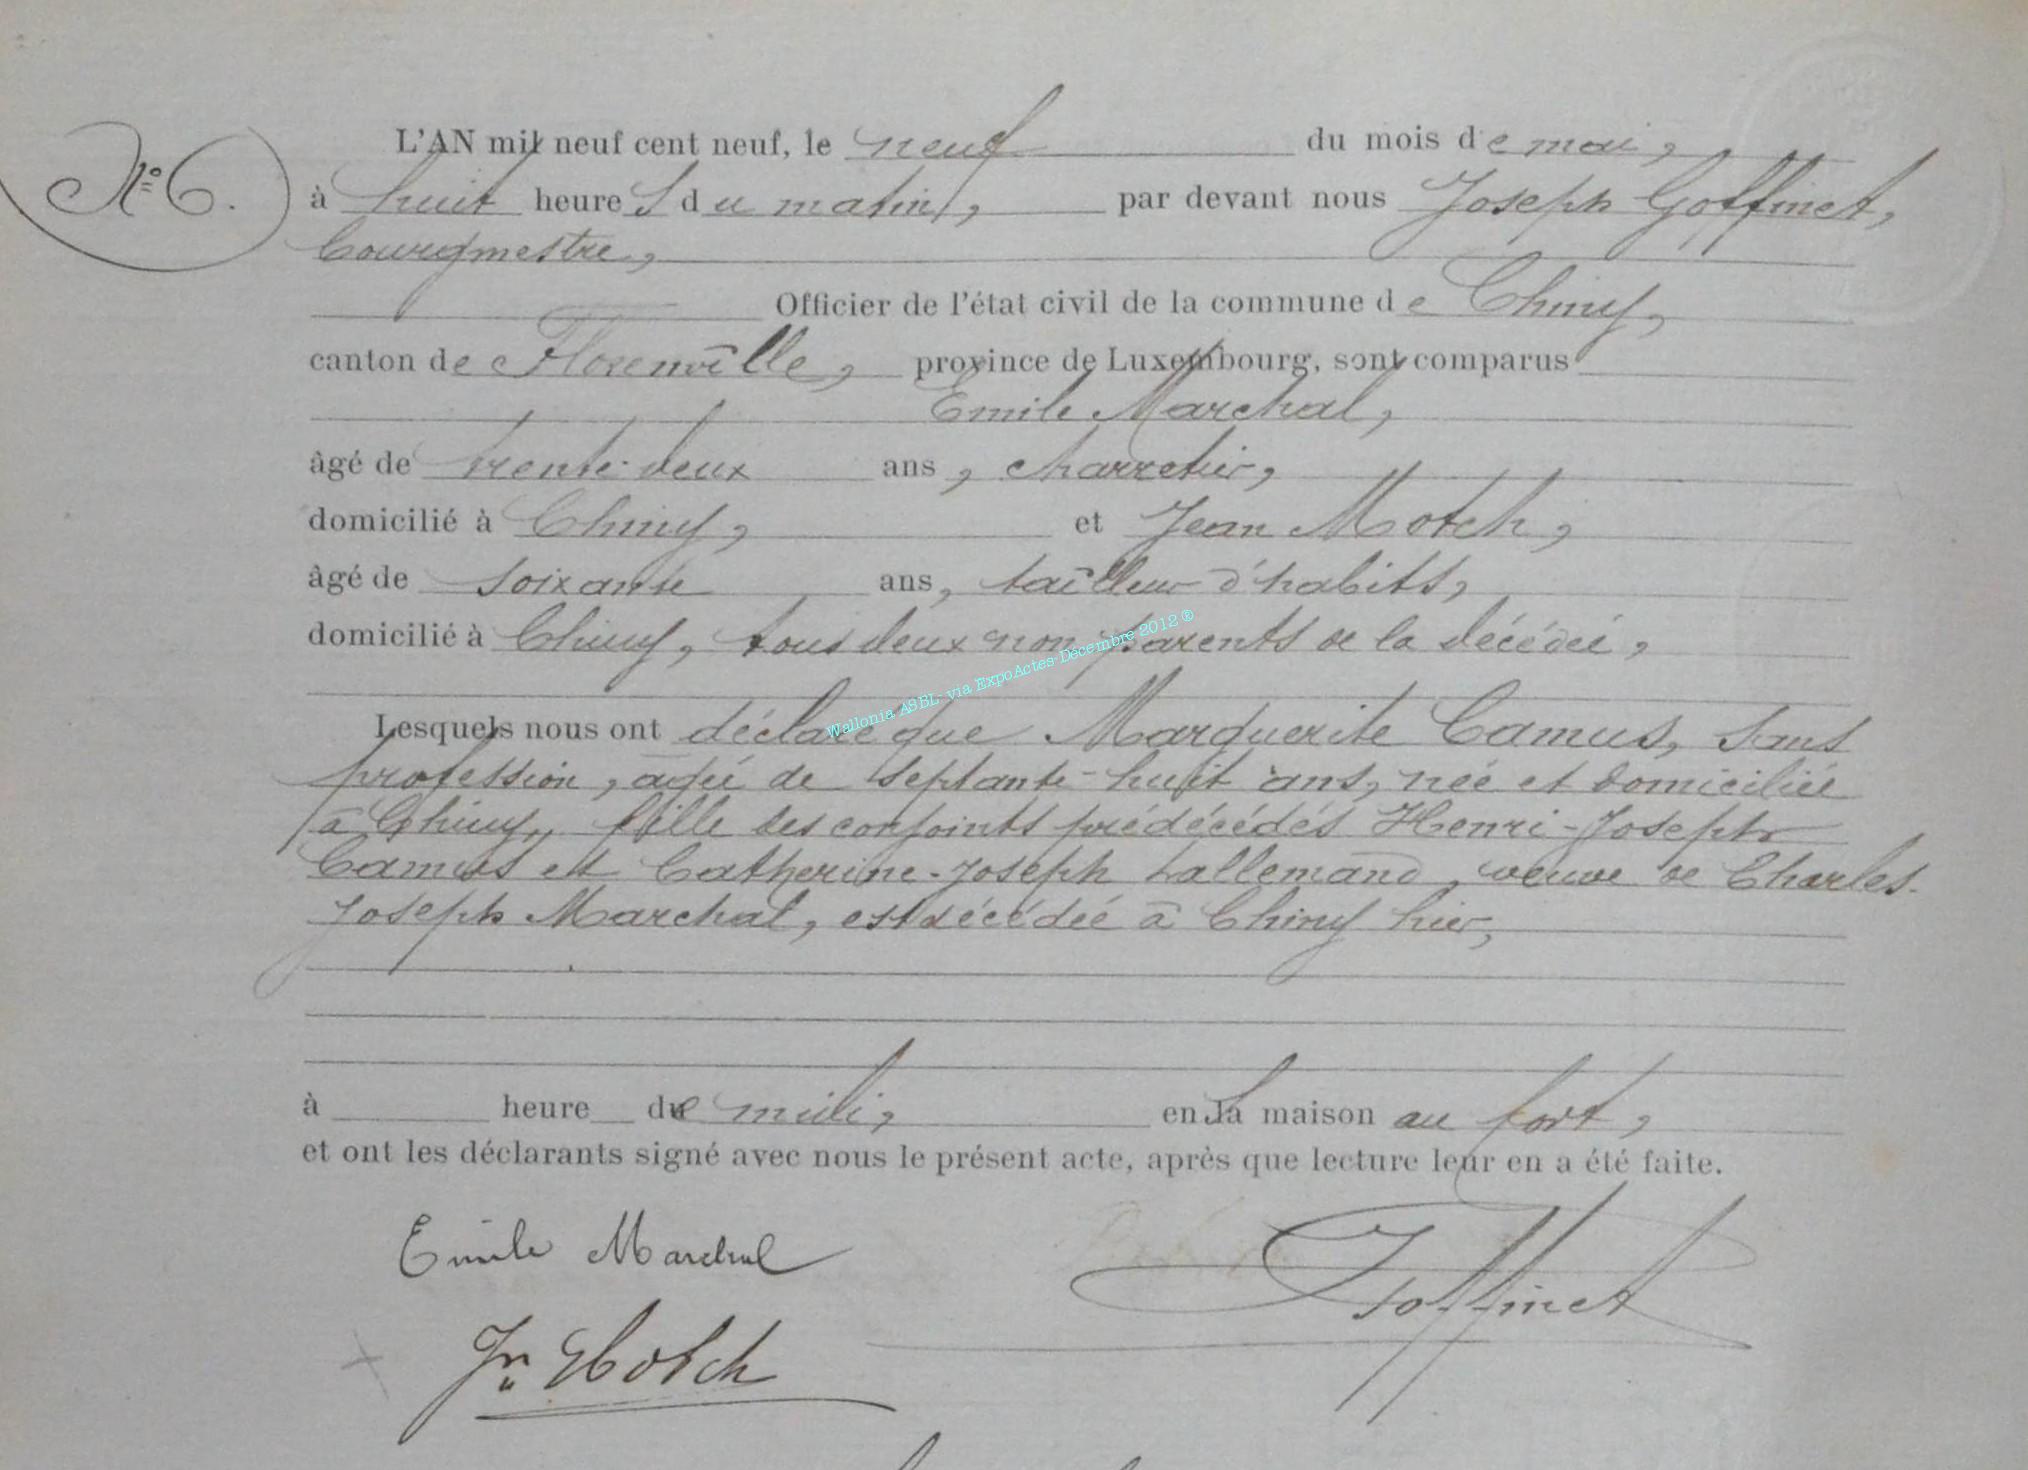 N° 6.
L'AN mil neuf cent neuf, le neuf du mois de mai,
à huit heures du matin, par devant nous Joseph Goffinet,
bourgmestre,
Officier de l'état civil de la commune de Chiny,
canton de Florenville, province de Luxembourg, sont comparus
Emile Marchal,
âgé de trente-deux ans, charretier,
domicilié à Chiny, et Jean Motch,
âgé de soixante ans, tailleur d'habits,
domicilié à Chiny, tous deux non parents de la décédée,
Wallonia ASBL- via ExpoActes-Décembre 2012 ®
Lesquels nous ont déclaré que Marguerite Camus, sans
profession, âgée de septante-huit ans, née et domiciliée
à Chiny, fille des conjoints prédécédés Henri-Joseph
Camus et Catherine-Joseph Lallemand, veuve de Charles-
Joseph Marchal, est décédée à Chiny hier,
à heure de midi, en sa maison au fort,
et ont les déclarants signé avec nous le présent acte, après que lecture leur en a été faite.
Emile Marchal
JGoffinet
Jn Motch